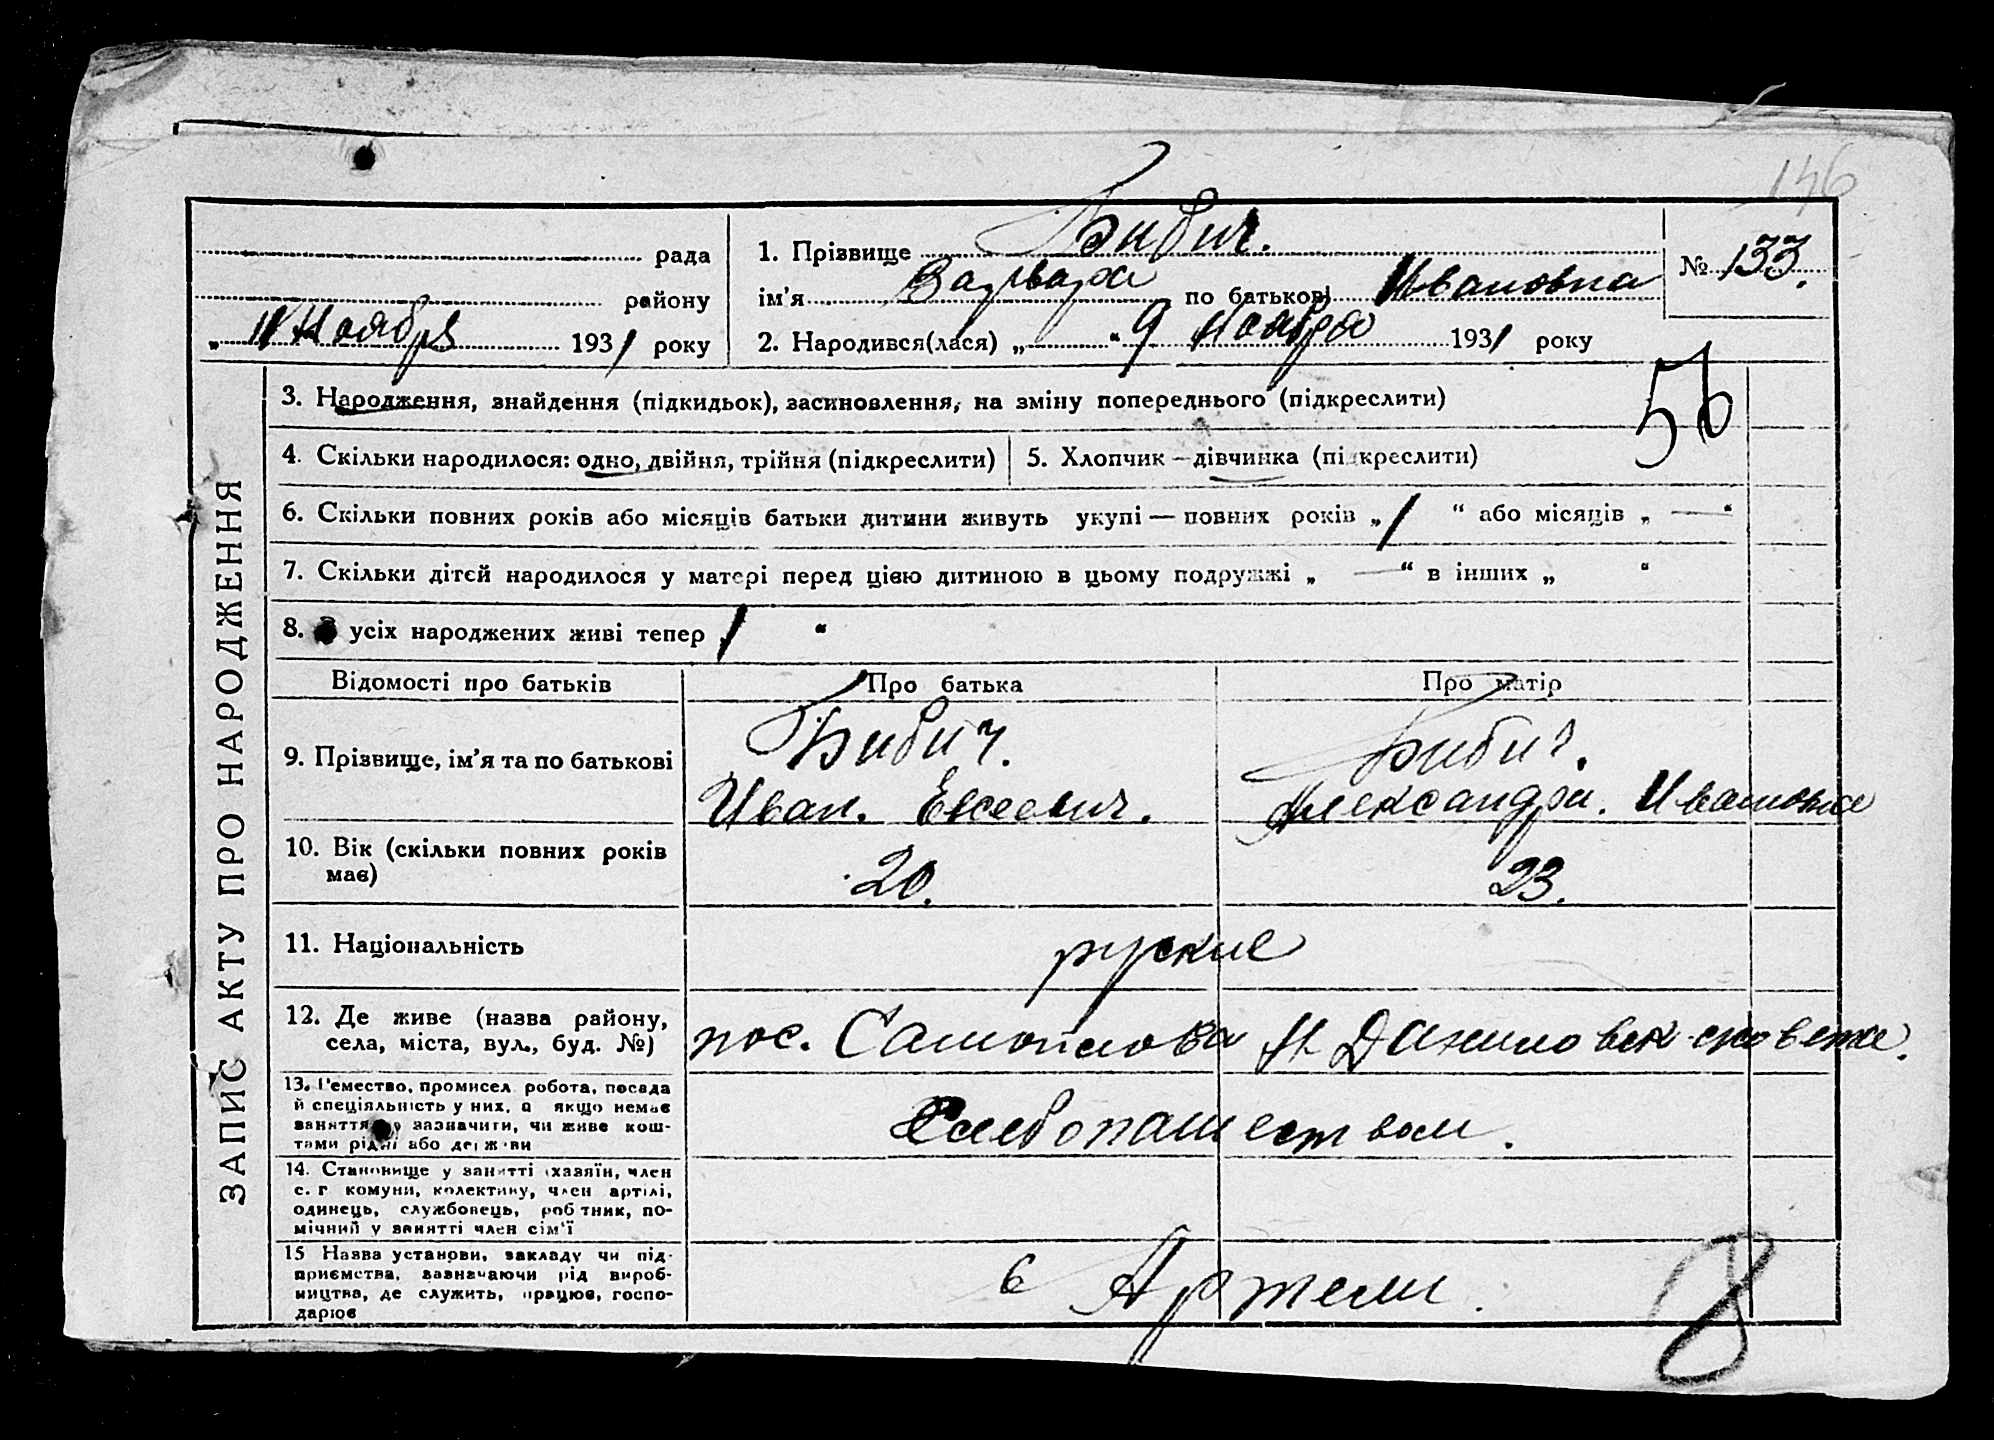 146
рада
району
„ 11 Ноября 1931 року
1. Прізвище Бибич.
ім'я Варвара по батькові Ивановна
2. Народився(лася) „ “ 9 Ноября 1931 року
№ 133.
56
ЗАПИС АКТУ ПРО НАРОДЖЕННЯ
3. Народження, знайдення (підкидьок), засиновлення, на зміну попереднього (підкреслити)
4. Скільки народилося: одно, двійня, трійня (підкреслити)
5. Хлопчик – дівчинка (підкреслити)
6. Скільки повних років або місяців батьки дитини живуть укупі — повних років „ 1 “ або місяців „ — “
7. Скільки дітей народилося у матері перед цією дитиною в цьому подружжі „ — “ в інших „ “
8. З усіх народжених живі тепер „ 1 “
Відомості про батьків
Про батька
Про матір
9. Прізвище, ім'я та по батькові
Бибич.
Иван. Евсеевич.
Бибич.
Александра. Ивановна
10. Вік (скільки повних років
має)
20.
23.
11. Національність
руские
12. Де живе (назва району,
села, міста, вул., буд. №)
пос. Самойлова Н Даниловск сковета.
13. Ремество, промисел, робота, посада
й спеціяльність у них, а якщо немає
заняття, то зазначити, чи живе кош-
тами рідні або держави
Хлебопашеством.
14. Становище у занятті (хазяїн, член
с. г комуни, колективу, член артілі,
одинець, службовець, робітник, по-
мічний у занятті член сім'ї
15 Назва установи, закладу чи під-
приємства, зазначаючи рід вироб-
ництва, де служить, працює, госпо-
дарює
в Артели.
8